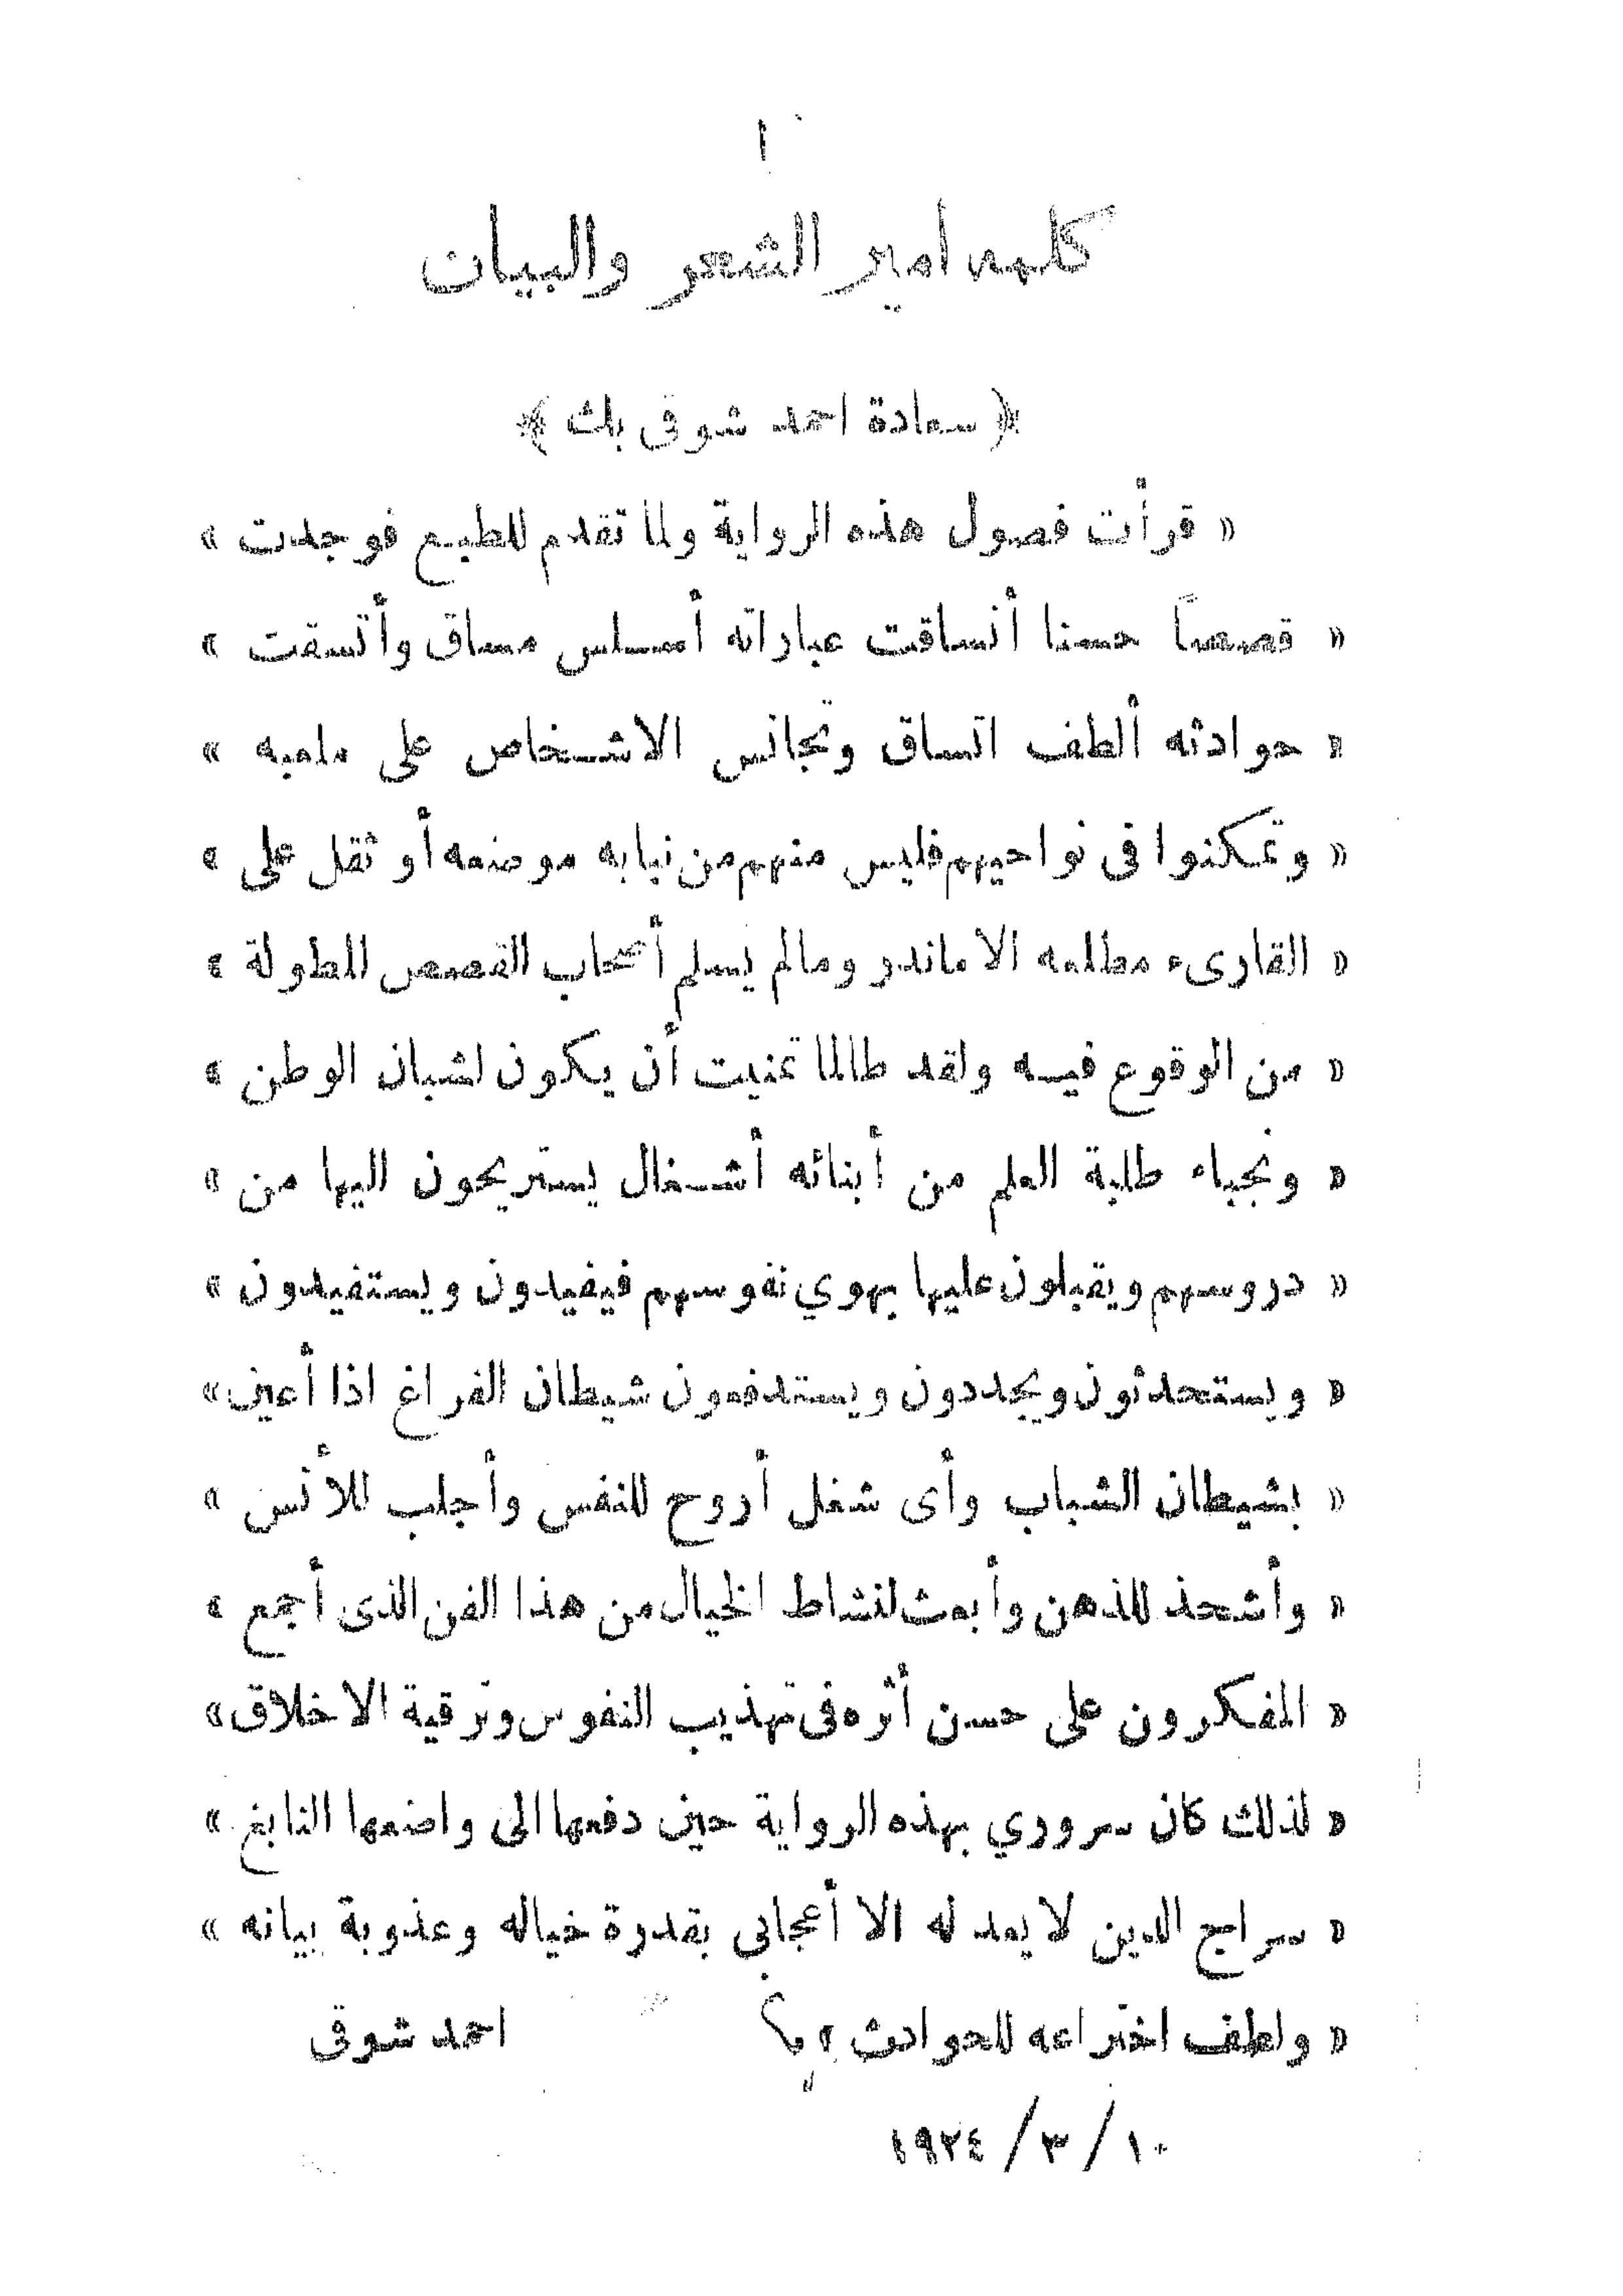 ا
كلمه أمير الشعر والبيان
﴿ سعادة احمد شوقى بك ﴾
« قرأت فصول هذه الرواية ولما تقدم للطبع فوجدت »
« قصصاً حسنا أنساقت عباراته أسلس مساق وأتسقت »
« حوادثه ألطف اتساق وتجانس الاشخاص على ملعبه »
« وتمكنوا فى نواحيهم فليس منهم من نبا به موضعه أو ثقل على »
« القارىء مطلعه الا ماندر ومالم يسلم أصحاب القصص المطولة »
« من الوقوع فيه ولقد طالما تمنيت أن يكون لشبان الوطن »
« ونجباء طلبة العلم من أبنائه أشغال يستريحون اليها من »
« دروسهم ويقبلون عليها بهوي نفوسهم فيفيدون ويستفيدون »
« ويستحدثون ويجددون ويستدفعون شيطان الفراغ اذا أعين »
« بشيطان الشباب وأى شغل أروح للنفس وأجلب للأنس »
« وأشحذ للذهن وأبعث لنشاط الخيال من هذا الفن الذى أجمع »
« المفكرون على حسن أثره فى تهذيب النفوس وترقية الاخلاق »
« لذلك كان سروري بهذه الرواية حين دفعها الى واضعها النابغ »
« سراج الدين لا يعد له الا أعجابى بقدرة خياله وعذوبة بيانه »
« ولطف اختراعه للحوادث » احمد شوقى
١٠/٣/١٩٢٤